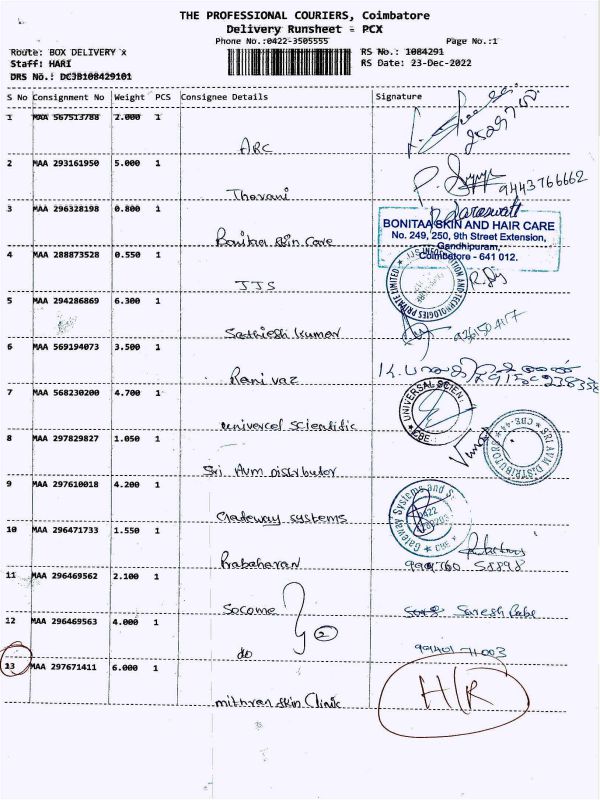 THE PROFESSIONAL COURIERS, Coimbatore
Delivery Runsheet - PCX
Phone No.:0422-3505555 Page No.:1
Route: BOX DELIVERY x RS No.: 1084291
Staff: HARI RS Date: 23-Dec-2022
DRS No.: DCJB108429101
S No Consignment No Weight PCS Consignee Details Signature
1 MAA 567513788 2.000 1
ARC
2 MAA 293161950 5.000 1
Tharani 9443766662
3 MAA 296328198 0.800 1
Saraswati
Bonitaa Skin Care
BONITAA SKIN AND HAIR CARE
No. 249, 250, 9th Street Extension,
Gandhipuram,
Coimbatore - 641 012.
4 MAA 288873528 0.550 1
JJS
JJS INFORMATION AND TECHNOLOGIES PRIVATE LIMITED
5 MAA 294286869 6.300 1
Sathiesh Kumar
6 MAA 569194073 3.500 1
Ranivaz
7 MAA 568230200 4.700 1
Univercel Scientific
UNIVERSAL SCIEN
CBE
8 MAA 297829827 1.050 1
Sri AVM Distributor
SRI AVM DISTRIBUTORS
CBE-44
9 MAA 297610018 4.200 1
Gateway Systems
Gateway Systems and S
CBE
10 MAA 296471733 1.550 1
Prabaharan
11 MAA 296469562 2.100 1
Socome Suresh Babu
12 MAA 296469563 4.000 1
2
do
13 MAA 297671411 6.000 1
H/R
mithran skin Clinic